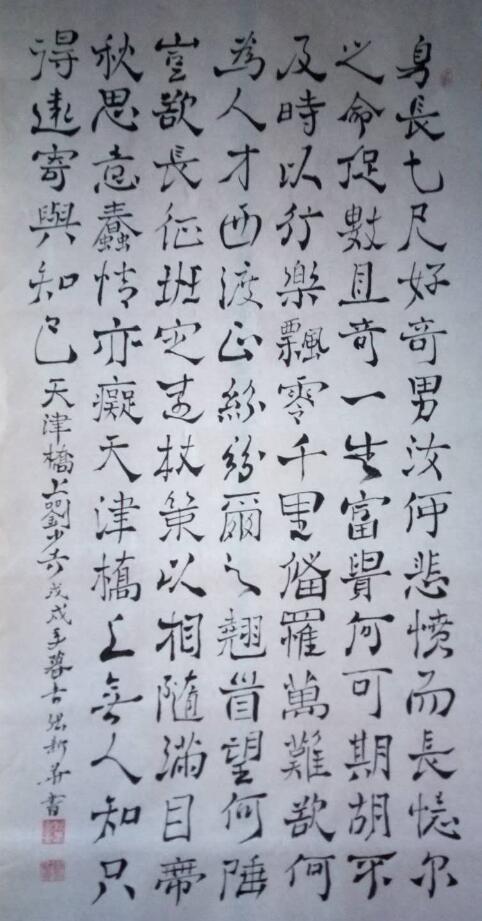 身長七尺好奇男汝何悲憤而長尔
之命促數且奇一生富貴何可期胡不
及時以行樂飄零千里備罹萬難欲何
為人才西渡正紛紛爾之翹首望何陲
豈欲長征班定遠杖策以相隨滿目帝
秋思意蠢情亦癡天津橋上無人知只
得遠寄與知己 天津橋上劉少戊戌年暮書